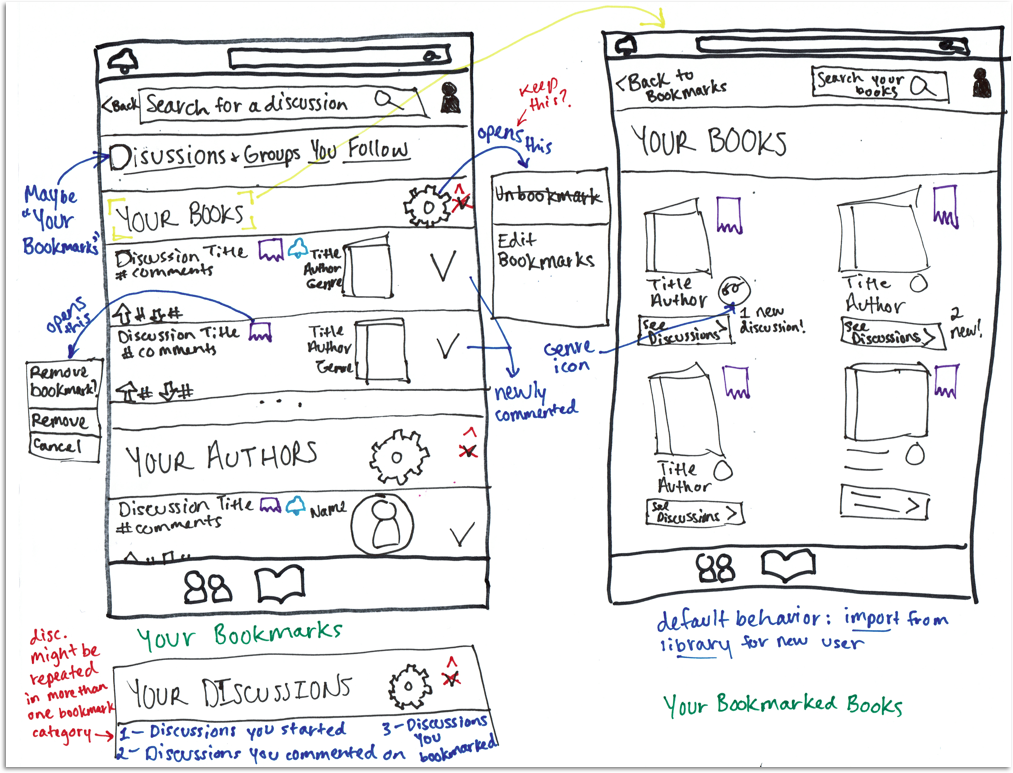 <Back
Search for a discussion
Disussions & Groups You Follow
Maybe
"Your
Bookmarks"
YOUR BOOKS
Discussion Title
# comments
Title
Author
Genre
# #
Discussion Title
# comments
Title
Author
Genre
# #
...
YOUR AUTHORS
Discussion Title
# comments
Name
opens
this
Remove
bookmark?
Remove
Cancel
keep
this?
opens
this
Unbookmark
Edit
Bookmarks
newly
commented
Your Bookmarks
disc.
might be
repeated
in more than
one bookmark
category
YOUR DISCUSSIONS
1- Discussions you started
2- Discussions you commented on
3- Discussions
you
bookmarked
<Back to
Bookmarks
Search your
books
YOUR BOOKS
Title
Author
See
Discussions >
1 new
discussion!
Genre
icon
Title
Author
See
Discussions >
2
new!
Title
Author
See
Discussions >
default behavior: import from
library for new user
Your Bookmarked Books